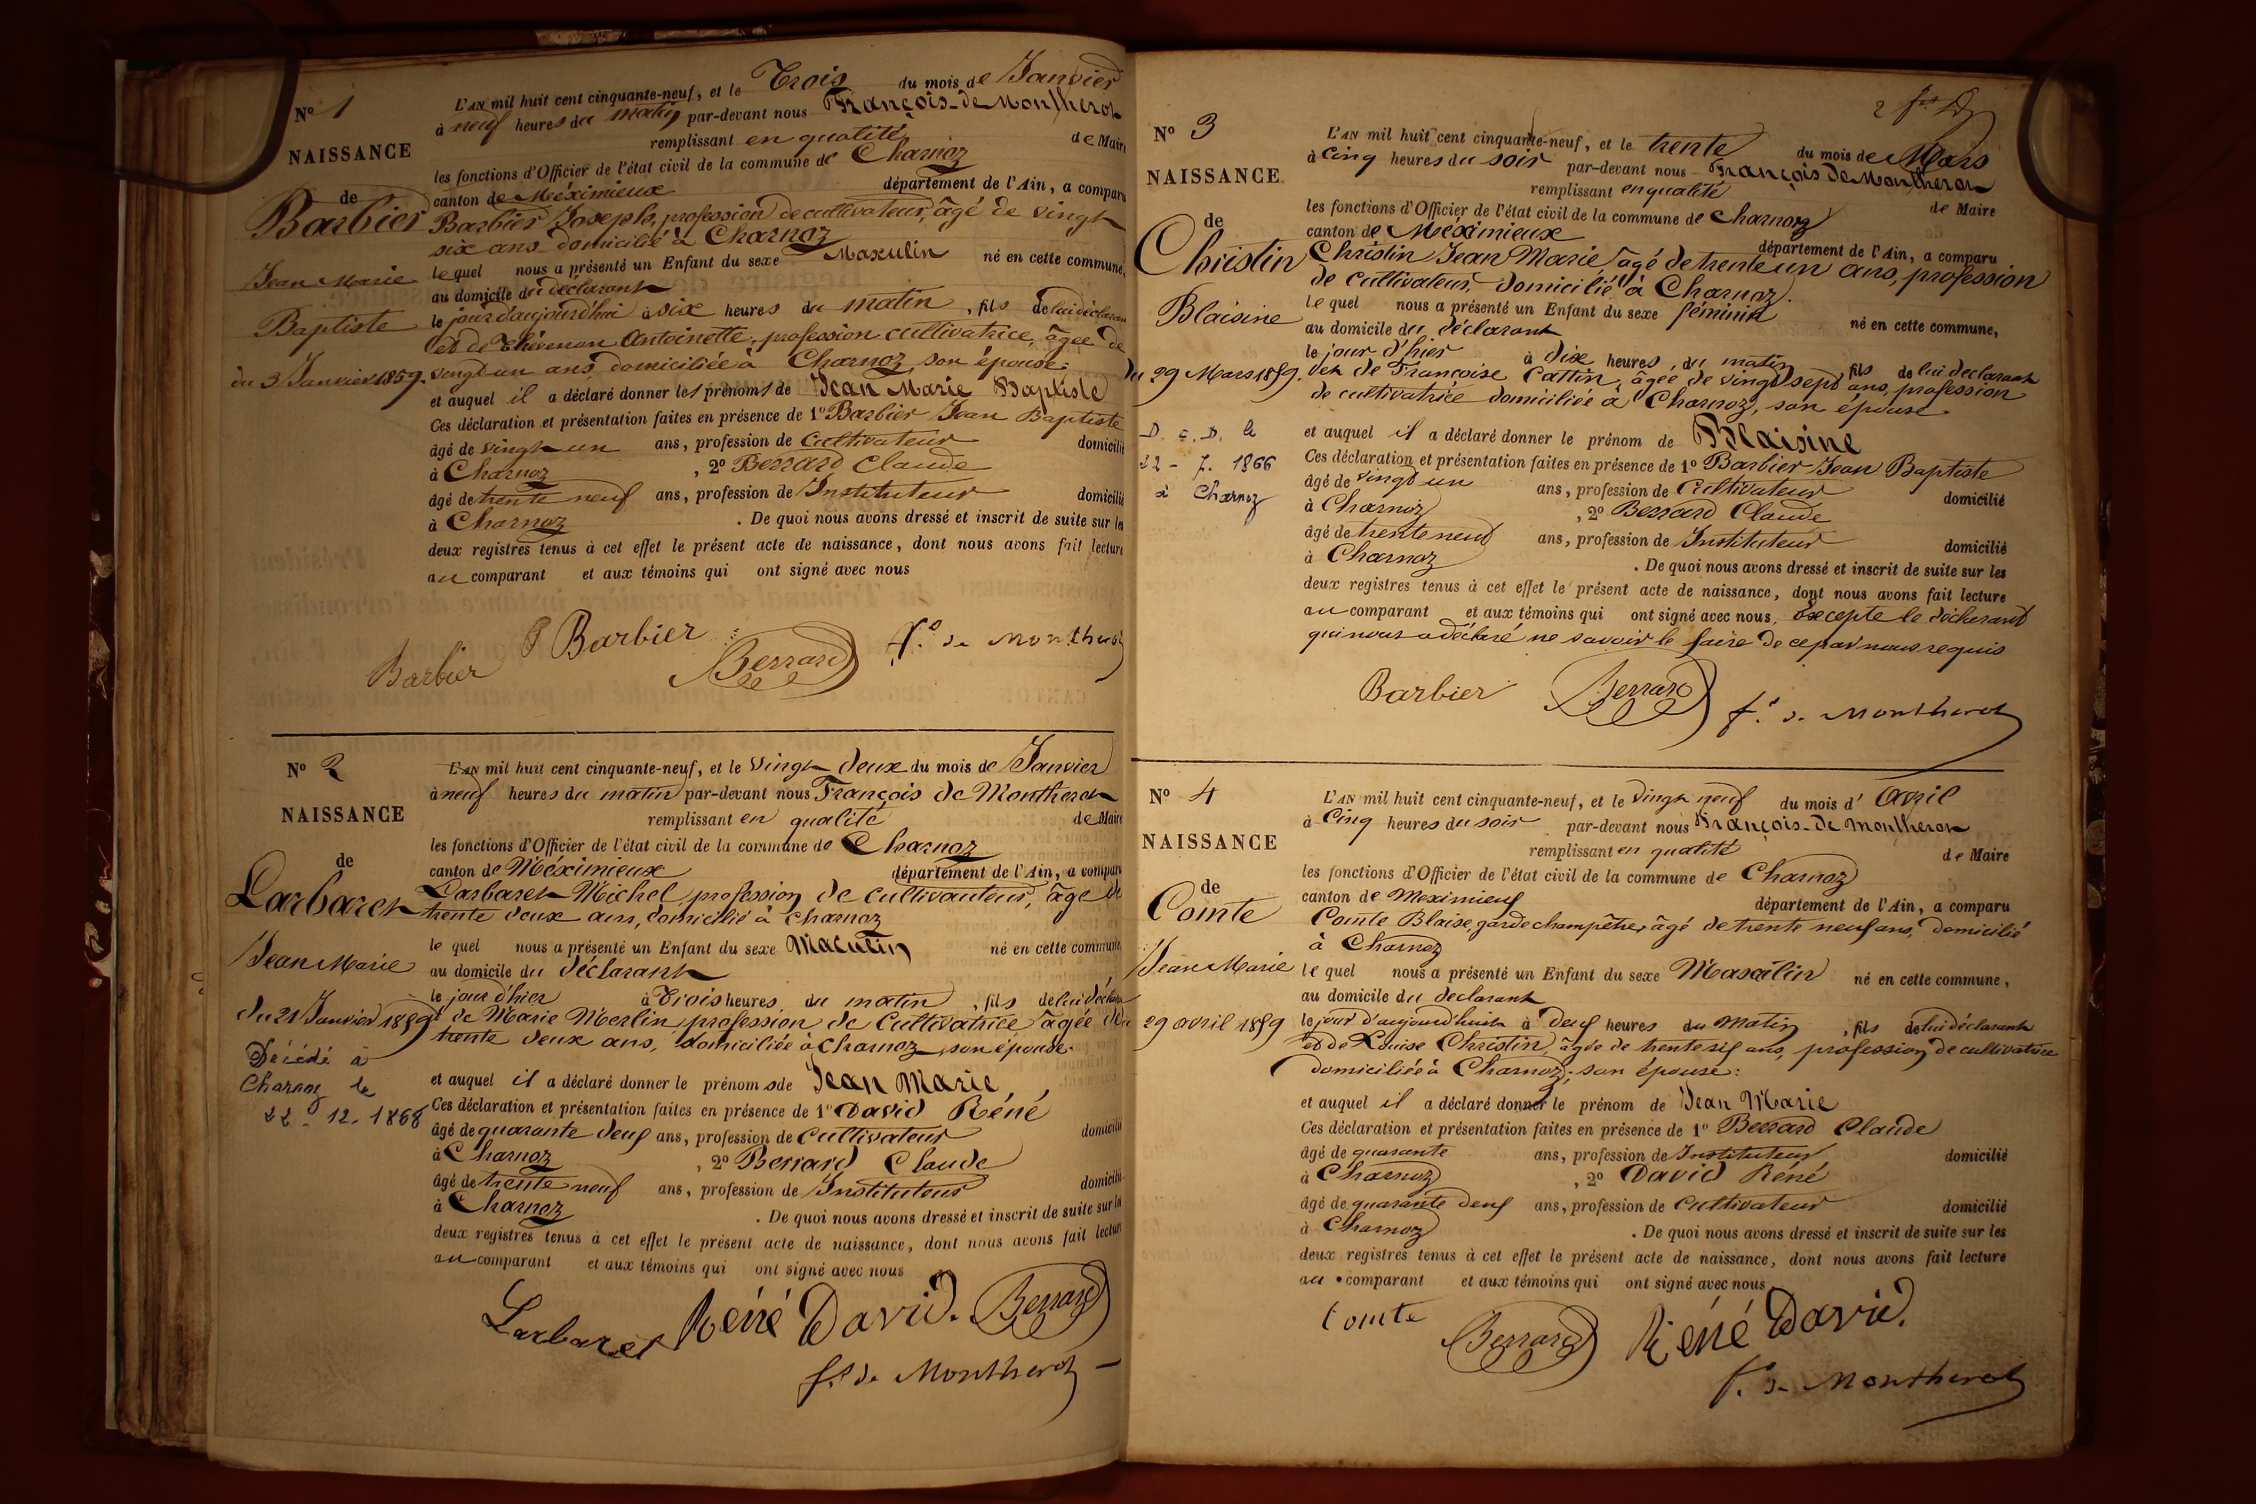 N° 1
NAISSANCE
de
Barbier
Jean Marie
Baptiste
du 3 Janvier 1859.
L'AN mil huit cent cinquante-neuf, et le Trois du mois de Janvier
à neuf heures du matin par-devant nous François de Montherot
remplissant en qualité de Maire
les fonctions d'Officier de l'état civil de la commune de Charnoz
canton de Méximieux département de l'Ain, a comparu
Barbier Joseph, profession de cultivateur, âgé de vingt
six ans domicilié à Charnoz
lequel nous a présenté un Enfant du sexe Masculin né en cette commune,
au domicile du déclarant
le jour d'aujourd'hui à six heures du matin, fils de lui déclarant
et de Thévenon Antoinette, profession cultivatrice, âgée de
vingt un ans domiciliée à Charnoz, son épouse.
et auquel il a déclaré donner les prénoms de Jean Marie Baptiste
Ces déclaration et présentation faites en présence de 1° Barbier Jean Baptiste
âgé de vingt un ans, profession de Cultivateur domicilié
à Charnoz, 2° Berrard Claude
âgé de trente neuf ans, profession de Instituteur domicilié
à Charnoz. De quoi nous avons dressé et inscrit de suite sur les
deux registres tenus à cet effet le présent acte de naissance, dont nous avons fait lecture
au comparant et aux témoins qui ont signé avec nous
Barbier Barbier Berrard f. de Montherot
N° 2
NAISSANCE
de
Larbaret
Jean Marie
du 21 Janvier 1859
Décédé à
Charnoz le
22. 12. 1868
L'AN mil huit cent cinquante-neuf, et le vingt deux du mois de Janvier
à neuf heures du matin par-devant nous François de Montherot
remplissant en qualité de Maire
les fonctions d'Officier de l'état civil de la commune de Charnoz
canton de Méximieux département de l'Ain, a comparu
Larbaret Michel, profession de cultivauteur, âgé de
trente deux ans, domicilié à Charnoz
le quel nous a présenté un Enfant du sexe Maculin né en cette commune,
au domicile du déclarant
le jour d'hier à Trois heures du matin, fils de lui déclarant
et de Marie Merlin profession de Cultivatrice âgée de
trente deux ans, domiciliée à Charnoz, son épouse.
et auquel il a déclaré donner le prénom sde Jean Marie
Ces déclaration et présentation faites en présence de 1° David Réné
âgé de quarante deuf ans, profession de Cultivateur domicilié
à Charnoz, 2° Berrard Claude
âgé de trente neuf ans, profession de Instituteur domicilié
à Charnoz. De quoi nous avons dressé et inscrit de suite sur les
deux registres tenus à cet effet le présent acte de naissance, dont nous avons fait lecture
au comparant et aux témoins qui ont signé avec nous
Larbaret Réné David. Berrard
f. de Montherot
N° 3
NAISSANCE
de
Christin
Blaisine
du 29 Mars 1859.
D. c. D. le
22 - 7. 1866
à Charnoz
L'AN mil huit cent cinquante-neuf, et le trente du mois de Mars
à Cinq heures du soir par-devant nous François de Montheron
remplissant en qualité de Maire
les fonctions d'Officier de l'état civil de la commune de Charnoz
canton de Méximieux département de l'Ain, a comparu
Christin Jean Marie âgé de trente un ans, profession
de cultivateur, domicilié à Charnoz.
le quel nous a présenté un Enfant du sexe féminin né en cette commune,
au domicile du déclarant
le jour d'hier à dix heures, du matin fils de lui declarant
et de Francoise Cattin, âgée de vingt sept ans, profession
de cultivatrice domiciliée à Charnoz, son épouse
et auquel il a déclaré donner le prénom de Blaisine
Ces déclaration et présentation faites en présence de 1° Barbier Jean Baptiste
âgé de vingt un ans, profession de Cultivateur domicilié
à Charnoz, 2° Berrard Claude
âgé de trente neuf ans, profession de Instituteur domicilié
à Charnoz. De quoi nous avons dressé et inscrit de suite sur les
deux registres tenus à cet effet le présent acte de naissance, dont nous avons fait lecture
au comparant et aux témoins qui ont signé avec nous, Excepte le déclarant
qui nous a déclaré ne savoir le faire de ce par nous requis
Barbier Berrard f. de Montherot
N° 4
NAISSANCE
de
Comte
Jean Marie
29 avril 1859
L'AN mil huit cent cinquante-neuf, et le vingt neuf du mois d' Avril
à Cinq heures du soir par-devant nous François de Montheron
remplissant en qualité de Maire
les fonctions d'Officier de l'état civil de la commune de Charnoz
canton de Meximieux département de l'Ain, a comparu
Comte Blaise, garde champêtre, âgé de trente neuf ans, domicilié
à Charnoz
le quel nous a présenté un Enfant du sexe Masculin né en cette commune,
au domicile du declarant
le jour d'aujourd'hui à Deuf heures du Matin, fils de lui déclarant
et de Louise Christin, âgée de trente sif ans, profession de cultivatrice
domiciliée à Charnoz, son épouse:
et auquel il a déclaré donner le prénom de Jean Marie
Ces déclaration et présentation faites en présence de 1° Berrard Claude
âgé de quarante ans, profession de Instituteur domicilié
à Charnoz, 2° David Réné
âgé de quarante deuf ans, profession de Cultivateur domicilié
à Charnoz. De quoi nous avons dressé et inscrit de suite sur les
deux registres tenus à cet effet le présent acte de naissance, dont nous avons fait lecture
au comparant et aux témoins qui ont signé avec nous
Comte Berrard Réné David.
f. de Montherot